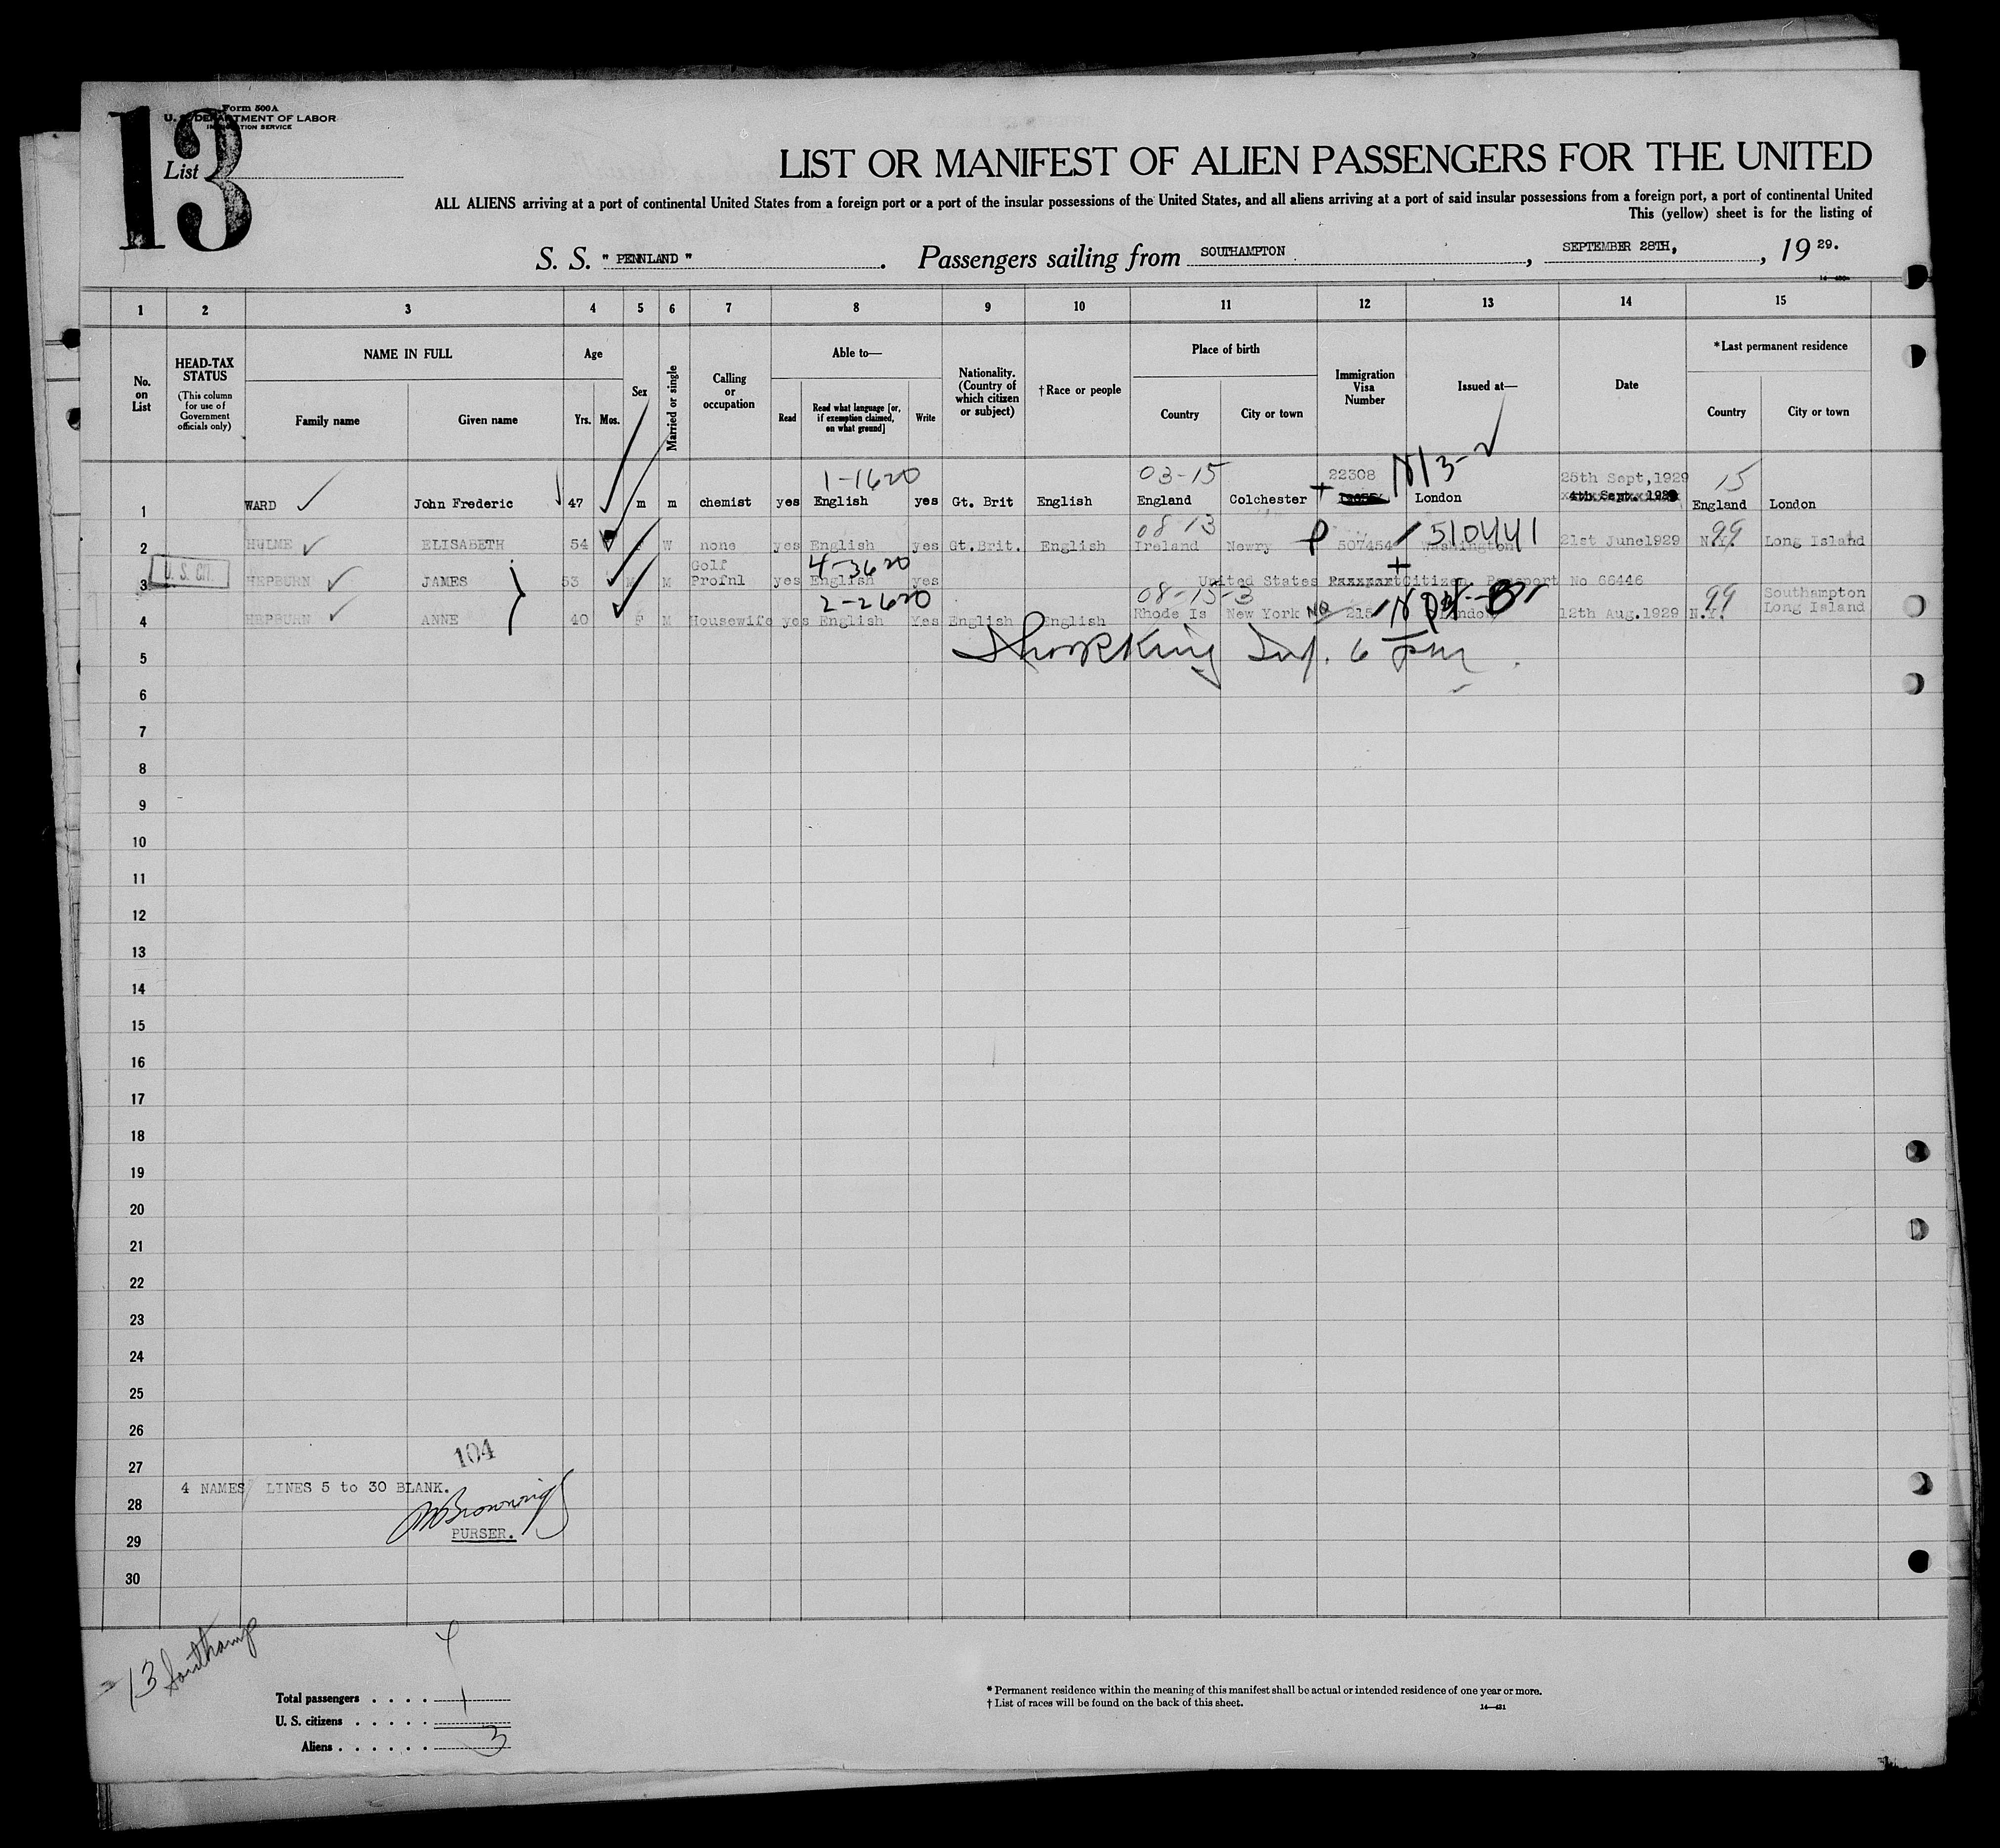 13
Form 500 A
U. S. DEPARTMENT OF LABOR
IMMIGRATION SERVICE
List
LIST OR MANIFEST OF ALIEN PASSENGERS FOR THE UNITED
ALL ALIENS arriving at a port of continental United States from a foreign port or a port of the insular possessions of the United States, and all aliens arriving at a port of said insular possessions from a foreign port, a port of continental United
This (yellow) sheet is for the listing of
S. S. " PENNLAND " . Passengers sailing from SOUTHAMPTON , SEPTEMBER 28TH, , 19 29.
1 2 3 4 5 6 7 8 9 10 11 12 13 14 15
No. on List
HEAD-TAX STATUS
(This column for use of Government officials only)
NAME IN FULL
Family name Given name
Age
Yrs. Mos.
Sex
Married or single
Calling or occupation
Able to—
Read
Read what language [or, if exemption claimed, on what ground]
Write
Nationality. (Country of which citizen or subject)
† Race or people
Place of birth
Country City or town
Immigration Visa Number
Issued at—
Date
*Last permanent residence
Country City or town
1-1620 03-15 22308 25th Sept,1929 15
1 WARD John Frederic 47 m m chemist yes English yes Gt. Brit English England Colchester London 4th Sept. 1929 England London
08 13 510441 99
2 HULME ELISABETH 54 F W none yes English yes Gt.Brit. English Ireland Newry P 507454 Washington 21st June1929 N.Y. Long Island
U. S. CIT.
4-3620
3 HEPBURN JAMES 53 M M Golf Profnl yes English yes United States Citizen Passport No 66446
2-2620 08-15-3 99
4 HEPBURN ANNE 40 F M Housewife yes English Yes English English Rhode Is New York NQ 215 London 12th Aug.1929 N.Y. Southampton Long Island
5
6
7
8
9
10
11
12
13
14
15
16
17
18
19
20
21
22
23
24
25
26
104
27
4 NAMES LINES 5 to 30 BLANK.
28
Browning
PURSER.
29
30
13 Southamp
4
Total passengers . . . . 1
U. S. citizens . . . . .
Aliens . . . . . . 3
* Permanent residence within the meaning of this manifest shall be actual or intended residence of one year or more.
† List of races will be found on the back of this sheet.